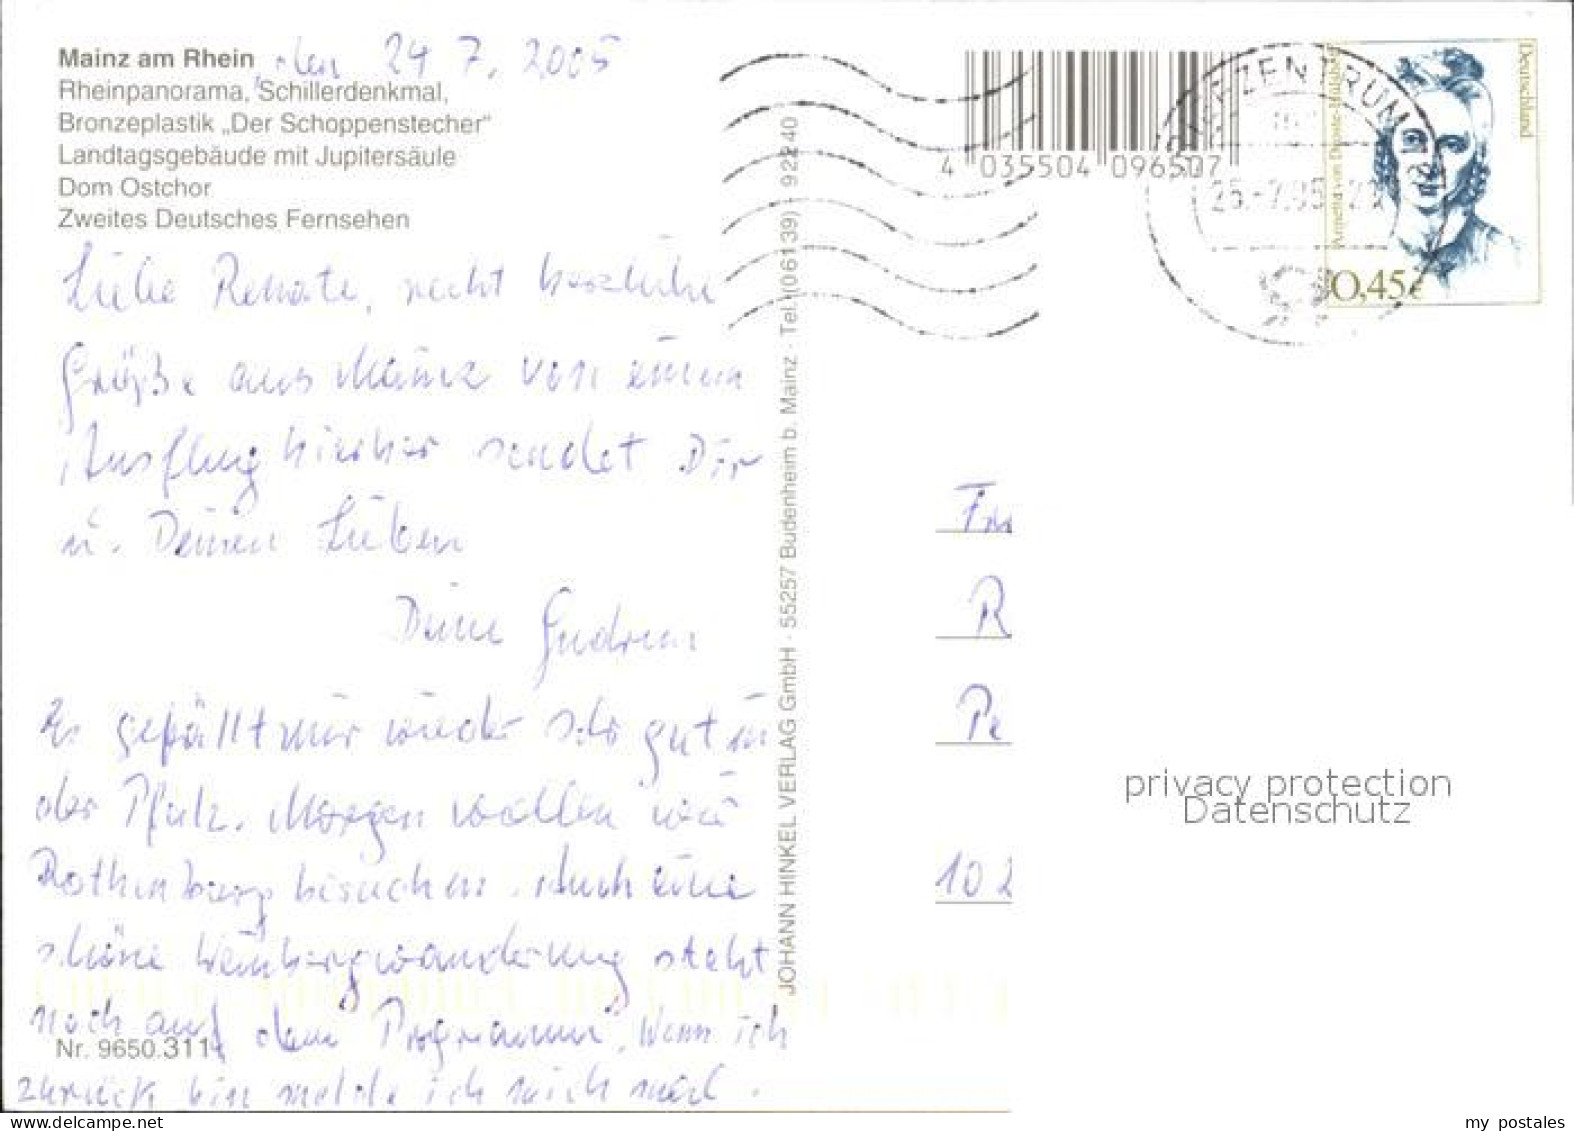 Mainz am Rhein
den 24 7. 2005
Rheinpanorama, Schillerdenkmal,
Bronzeplastik „Der Schoppenstecher"
Landtagsgebäude mit Jupitersäule
Dom Ostchor
Zweites Deutsches Fernsehen
Liebe Renate, recht herzliche
Grüße aus Mainz von einem
Ausflug hierher sendet Dir
u. Deinen Lieben
Deine Gudrun
Es gefällt mir wieder sehr gut in
der Pfalz. Morgen wollen wir
Rothenburg besuchen. Auch eine
schöne Weinbergwanderung steht
noch auf dem Programm. Wenn ich
zurück bin melde ich mich mal.
Nr. 9650.311
JOHANN HINKEL VERLAG GmbH · 55257 Budenheim b. Mainz · Tel. (06139) 92240
4 035504 096507
BRIEFZENTRUM
25.-7.05
Deutschland
Annette von Droste-Hülshoff
0,45€
R
Pe
102
privacy protection
Datenschutz
my postales